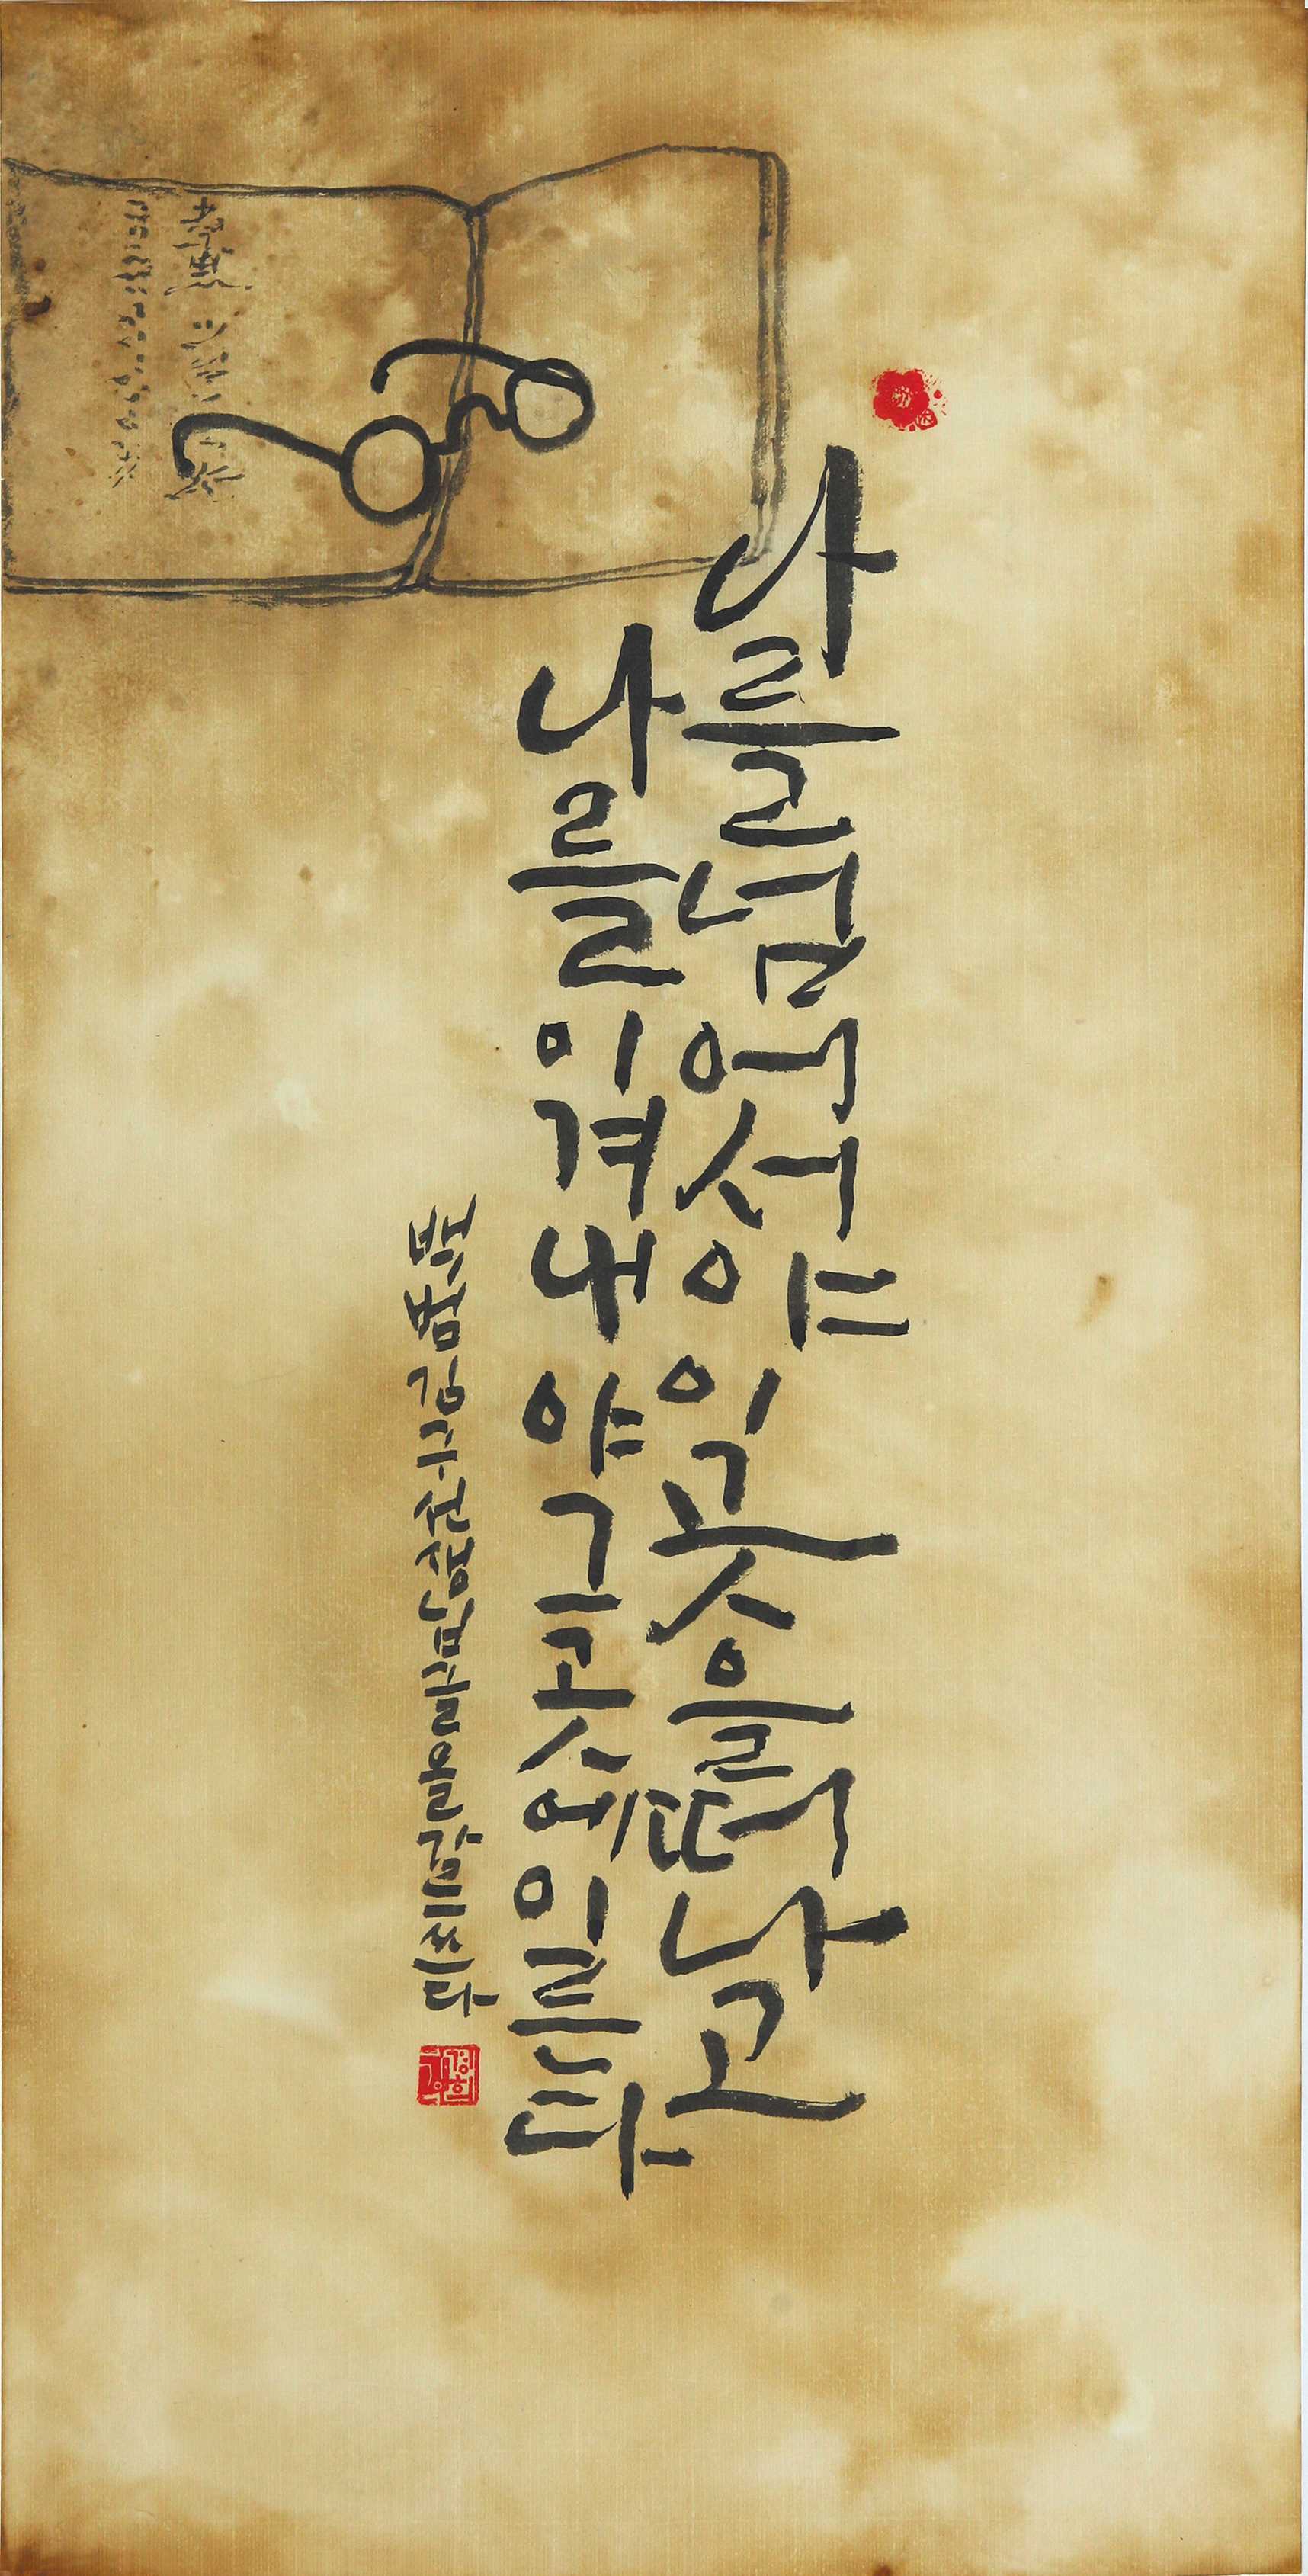 나를넘어서야이곳을떠나고
나를이겨내야그곳에이른다
백범김구선생님글을 쓰다
강경희